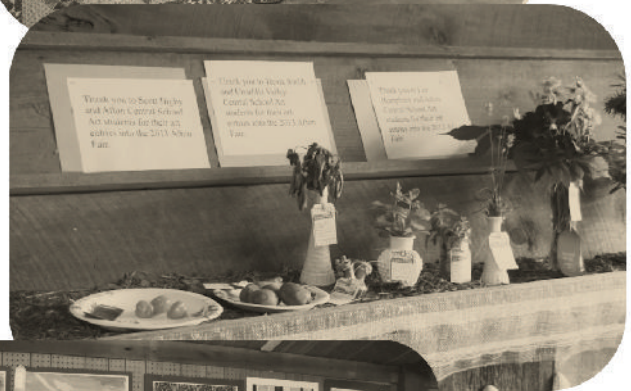 Thank you to Scott
and Afton Central School
Art students for their art
entries into the 2013 Afton
Fair.
Thank you to
and Unadilla Valley
Central School Art
students for their art
entries into the 2013 Afton
Fair.
Thank you to
students for their art
entries into the 2013 Afton
Fair.